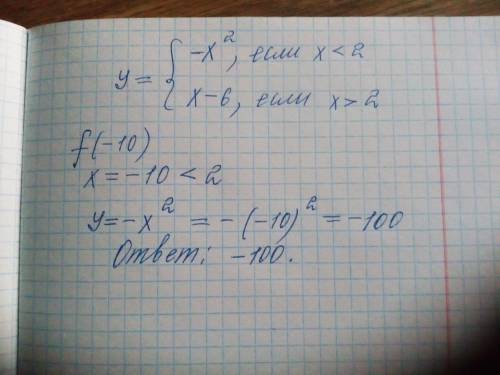 y = { -x², если x < 2
x-6, если x > 2
f(-10)
x = -10 < 2
y = -x² = -(-10)² = -100
Ответ: -100.